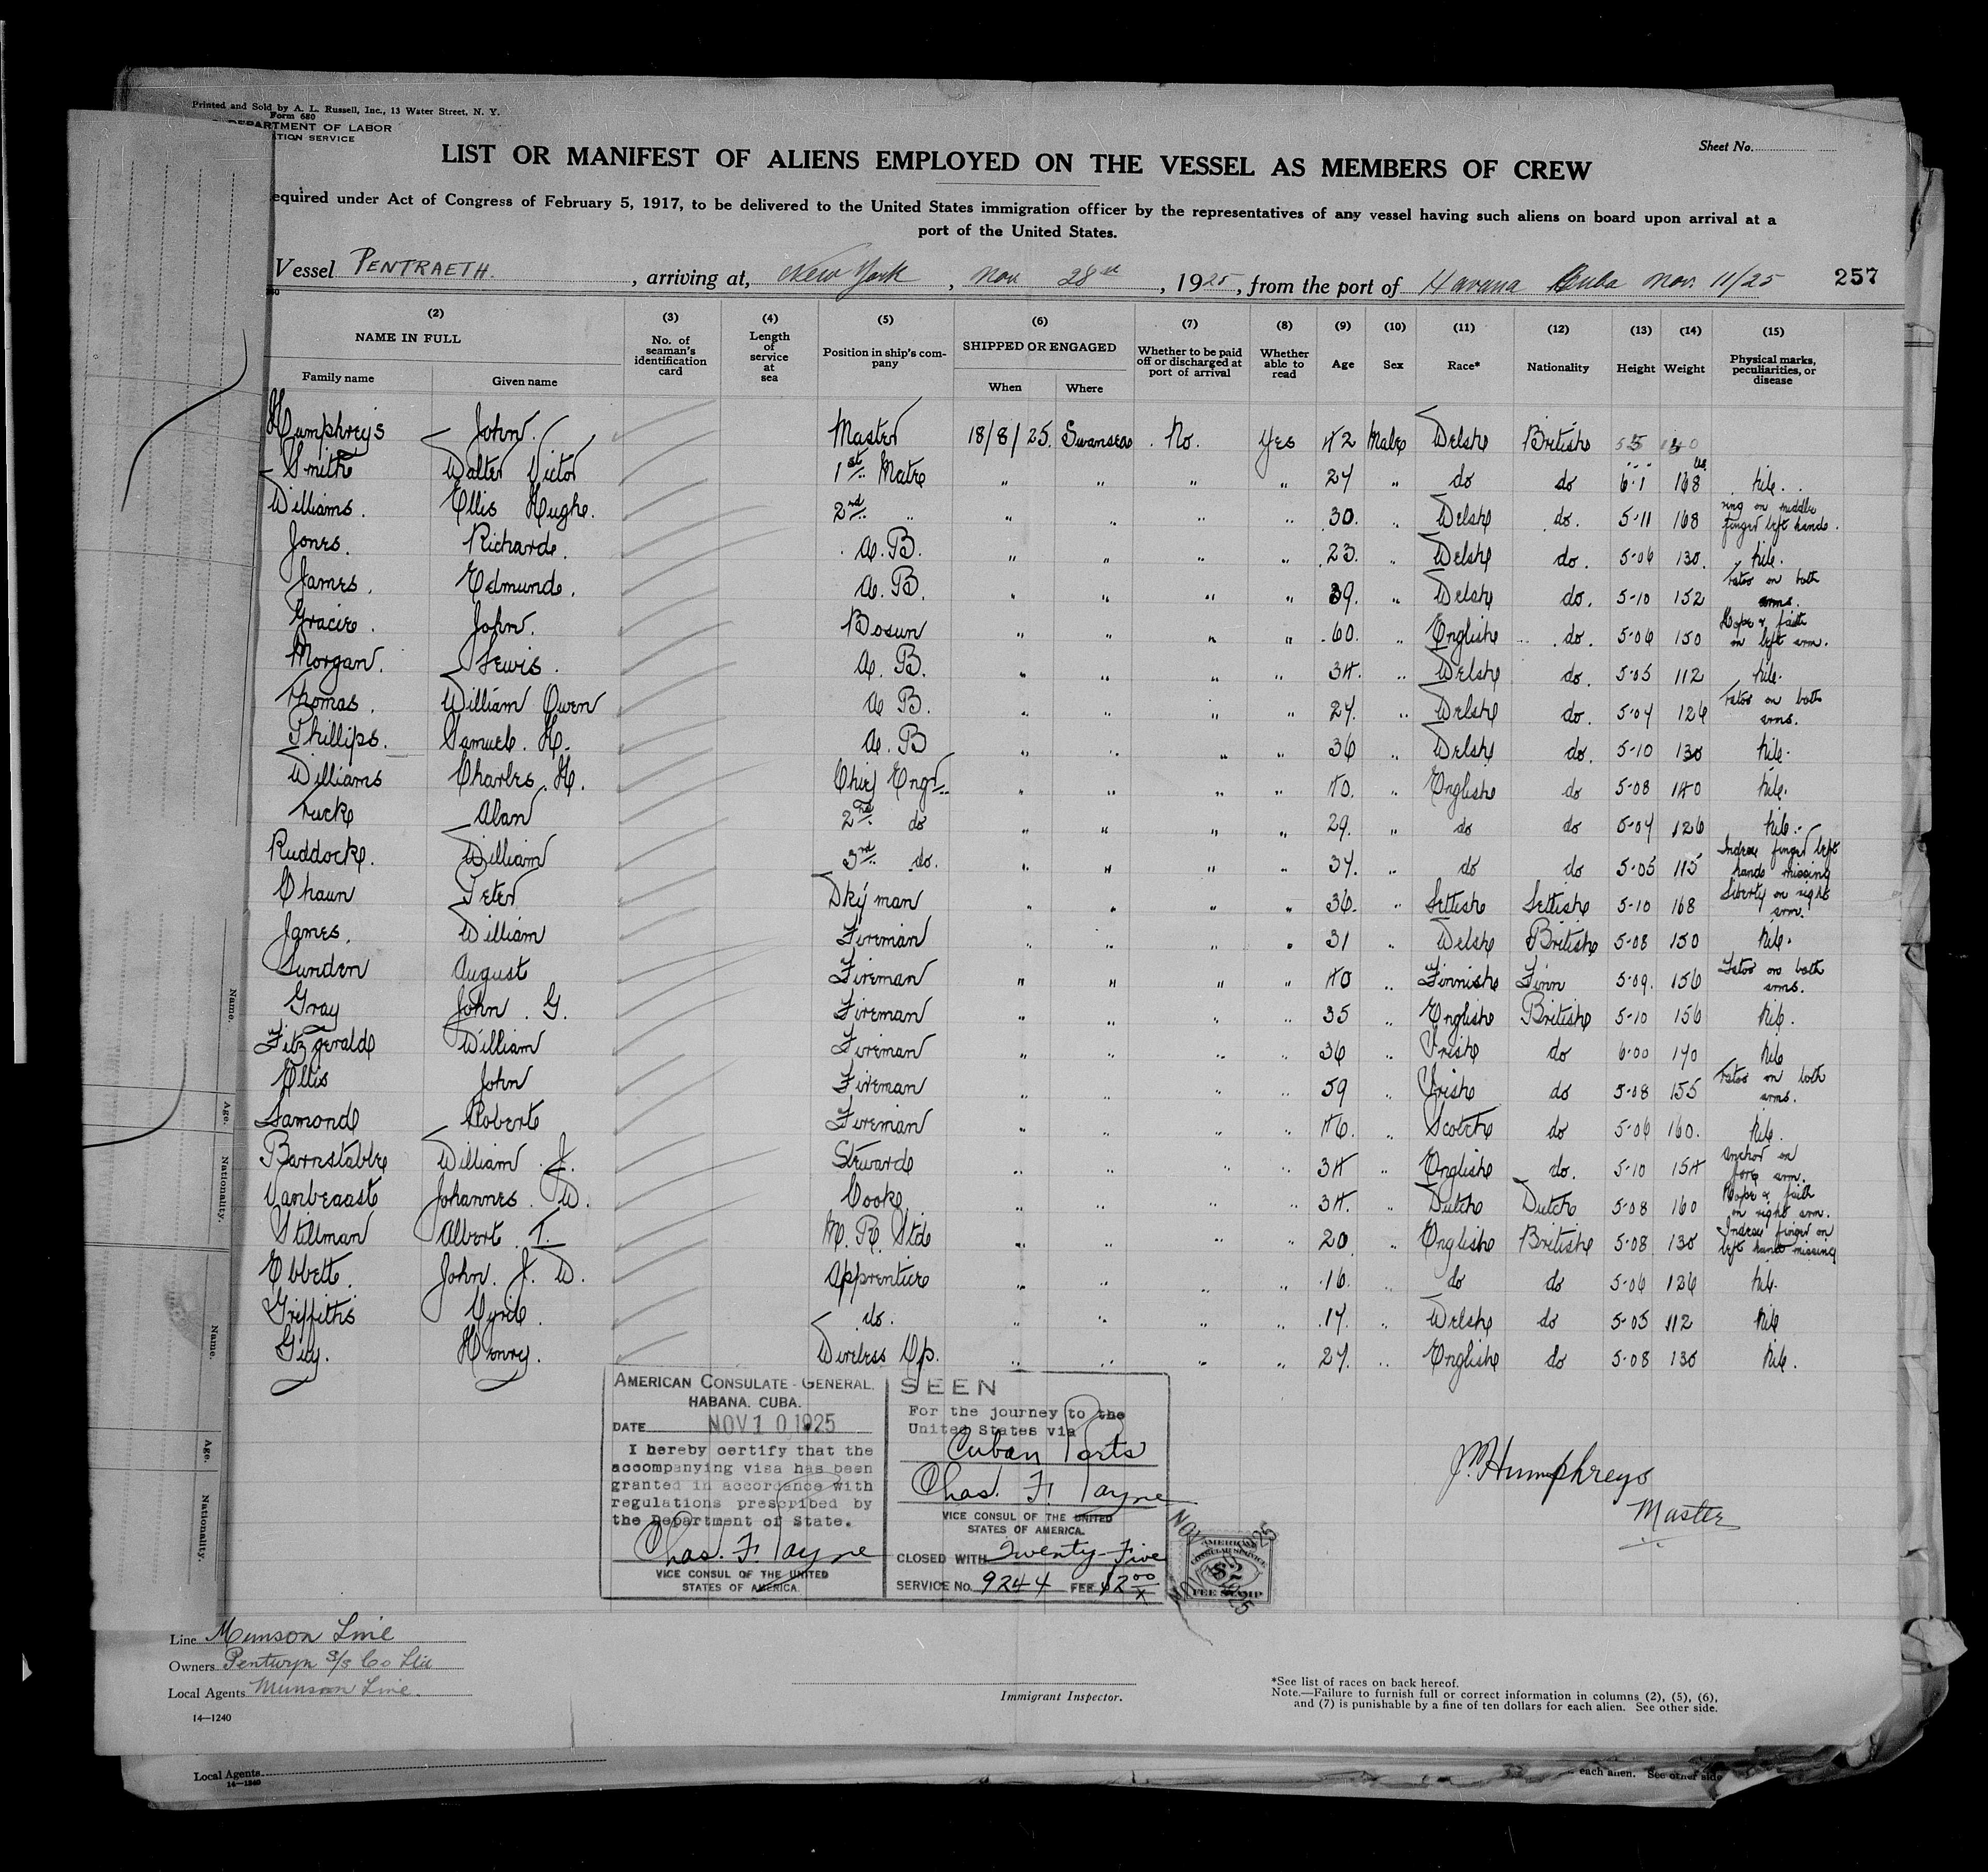 Printed and Sold by A. L. Russell, Inc., 13 Water Street, N. Y.
Form 680
DEPARTMENT OF LABOR
TION SERVICE
Sheet No.
LIST OR MANIFEST OF ALIENS EMPLOYED ON THE VESSEL AS MEMBERS OF CREW
equired under Act of Congress of February 5, 1917, to be delivered to the United States immigration officer by the representatives of any vessel having such aliens on board upon arrival at a
port of the United States.
Vessel PENTRAETH. , arriving at, New York , Nov 28th , 1925, from the port of Havana Cuba Nov. 11/25 257
(2) (3) (4) (5) (6) (7) (8) (9) (10) (11) (12) (13) (14) (15)
NAME IN FULL No. of seaman's identification card Length of service at sea Position in ship's company SHIPPED OR ENGAGED Whether to be paid off or discharged at port of arrival Whether able to read Age Sex Race* Nationality Height Weight Physical marks, peculiarities, or disease
Family name Given name When Where
Humphreys John. Master 18/8/25. Swansea. No. Yes 42 Male Welsh British
Smith Walter Victor 1st Mate " " " " 27 " do do 6.1 168 Nil.
Williams. Ellis Hugh. 2nd " " " " " 30. " Welsh do. 5-11 168 ring on middle finger left hand.
Jones. Richard. A.B. " " " " 23. " Welsh do. 5-06 130. Nil.
James. Edmund. A.B. " " " " 39. " Welsh do. 5-10 152 Tatoo on both arms.
Gracie. John. Bosun " " " " 60. " English do. 5-06 150 Hope & faith on left arm.
Morgan. Lewis. A.B. " " " " 34. " Welsh do. 5-05 112 Nil.
Thomas. William Owen A B. " " " " 27. " Welsh do. 5-07 126 Tatoo on both arms.
Phillips. Samuel. H. A.B " " " " 36 " Welsh do. 5-10 130 Nil.
Williams Charles. H. Chief Engr. " " " " 40. " English do 5-08 140 Nil.
Tuck Alan 2nd do " " " " 29. " do do 5-07 126 Nil.
Ruddock. William 3rd do. " " " " 37. " do do 5-05 115 Index finger left hand missing
Chaun Peter Dkyman " " " " 36. " Lettish Lettish 5-10 168 Liberty on right arm.
James. William Fireman " " " " 31 " Welsh British 5-08 150 Nil.
Sunden August Fireman " " " " 40 " Finnish Finn 5-09. 156 Tatoo on both arms.
Gray John. G. Fireman " " " " 35 " English British 5-10 156 Nil.
Fitzgerald William Fireman " " " " 36 " Irish do 6-00 170 Nil
Ellis John Fireman " " " " 59 " Irish do 5-08 155 Tatoo on both arms.
Lamond Robert Fireman " " " " 46. " Scotch do 5-06 160. Nil.
Barnstable William. J. Steward " " " " 34 " English do. 5-10 154 Anchor on fore arm.
Vanbeaast Johannes. W. Cook " " " " 34. " Dutch Dutch 5-08 160 Hope & faith on right arm.
Stillman Albert. T. M. R. Std " " " " 20 " English British 5-08 130 Index finger on left hand missing
Ebbett. John. J. W. Apprentice " " " " 16. " do do 5-06 126 Nil.
Griffiths Cyril. do. " " " " 17. " Welsh do 5-05 112 Nil
Guy. Henry. Wireless Op. " " " " 27. " English do 5-08 130 Nil.
AMERICAN CONSULATE-GENERAL.
HABANA. CUBA.
DATE NOV 10 1925
I hereby certify that the
accompanying visa has been
granted in accordance with
regulations prescribed by
the Department of State.
Chas. F. Payne
VICE CONSUL OF THE UNITED
STATES OF AMERICA.
SEEN
For the journey to the
United States via
Cuban Ports
Chas. F. Payne
VICE CONSUL OF THE UNITED
STATES OF AMERICA.
CLOSED WITH Twenty-Five
SERVICE No. 9244 FEE $2 00/x
AMERICAN
CONSULAR SERVICE
$2
FEE STAMP
J. Humphreys
Master
Name.
Age.
Nationality.
Name.
Age.
Nationality.
Line Munson Line
Owners Pentwyn S/S Co Ltd
Local Agents Munson Line.
14—1240
Immigrant Inspector.
*See list of races on back hereof.
Note.—Failure to furnish full or correct information in columns (2), (5), (6),
and (7) is punishable by a fine of ten dollars for each alien. See other side.
Local Agents
14—1240
each alien. See other side